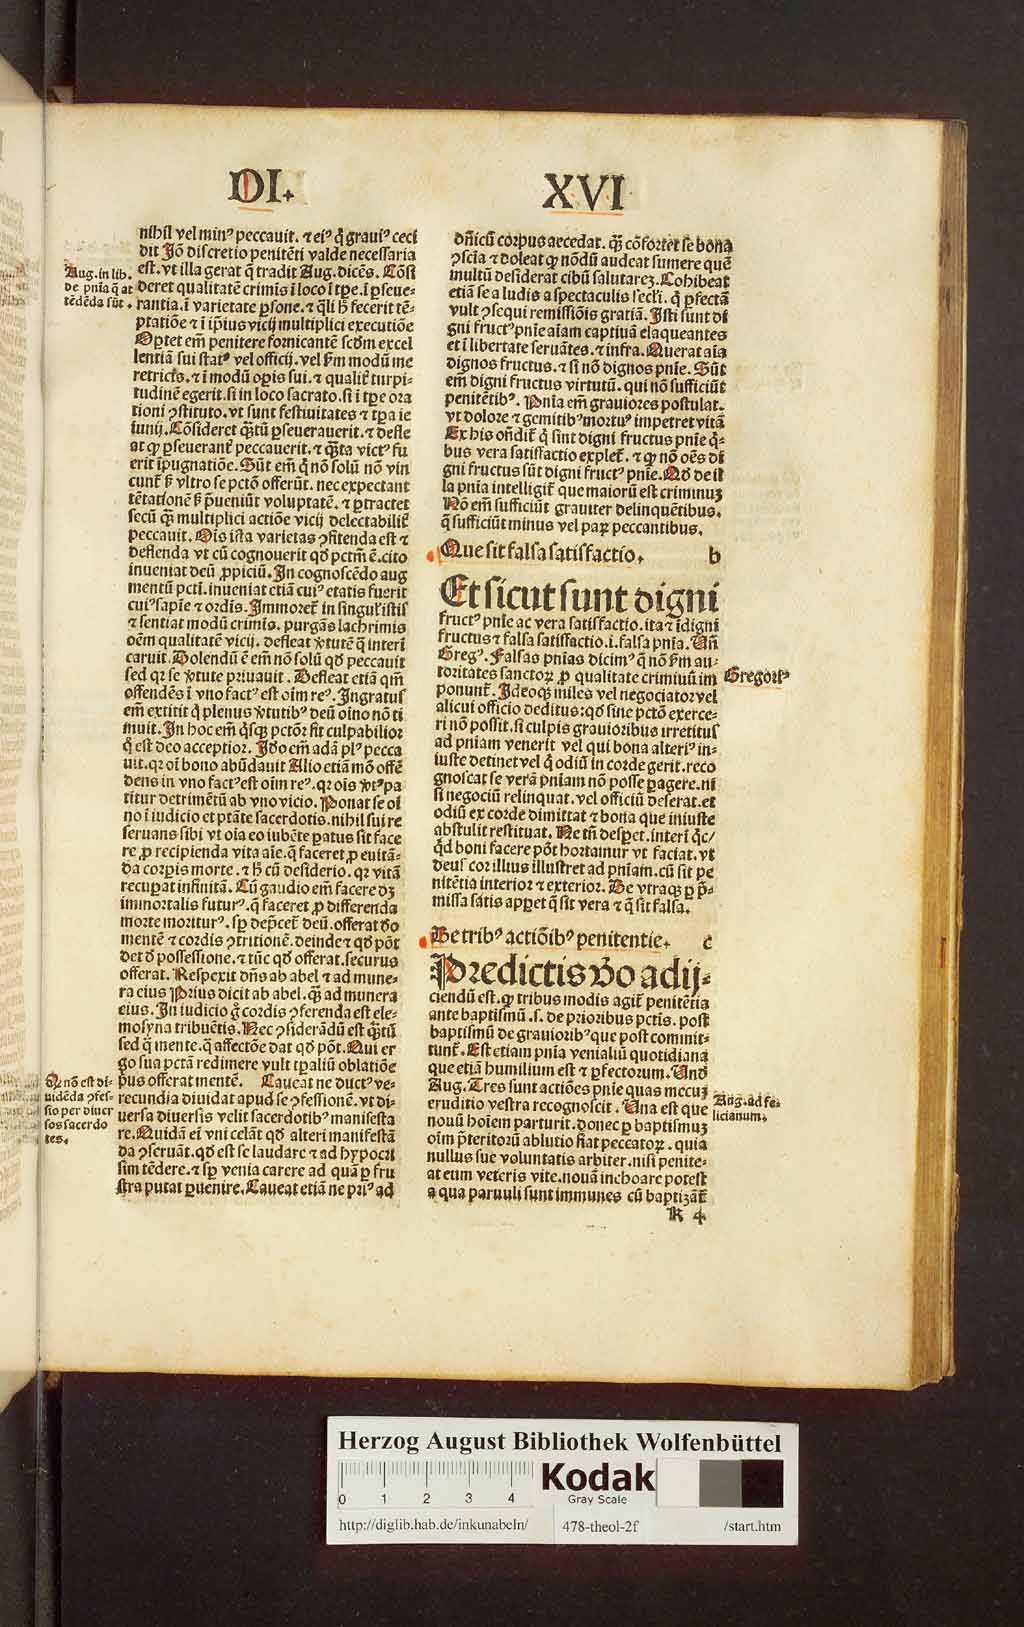 DI.
XVI
nihil vel minꝰ peccauit. ⁊ eiꝰ q̇ grauiꝰ ceci
dit Jō discretio penitēti valde necessaria
est. vt illa gerat q̄ tradit Aug. dicēs. Cōsi
deret qualitatē crimis ī loco ī tp̄e. ī ꝑseue-
rantia. ī varietate ꝑsone. ⁊ q̄li h̄ fecerit tē-
ptatiōe ⁊ ī ip̄ius vicij multiplici executiōe
Oꝑtet em̄ penitere fornicantē scd̄m excel
lentiā sui statꝰ vel officij. vel ẜm modū me
retricis. ⁊ ī modū oꝑis sui. ⁊ qualit̄ turpi-
tudinē egerit. si in loco sacrato. si ī tp̄e ora
tioni ꝯstituto. vt sunt festiuitates ⁊ tp̄a ie
iunij. Cōsideret qͣ̄tū ꝑseuerauerit. ⁊ defle
at qꝫ ꝑseuerant̄ peccauerit. ⁊ qͣ̄ta victꝰ fu
erit īpugnatiōe. Sūt em̄ q̇ nō solū nō vin
cunt̄ ẜ vltro se pctō offerūt. nec expectant
tētationē ẜ p̄ueniūt voluptatē. ⁊ ꝑtractet
secū qͣ̄ multiplici actiōe vicij delectabilit̄
peccauit. Ois ista varietas ꝯfitenda est ⁊
deflenda vt cū cognouerit qd̓ pctm̄ ē. cito
inueniat deū ꝓpiciū. In cognoscēdo aug
mentū pcti. inueniat etiā cuiꝰ etatis fuerit
cuiꝰ sapīe ⁊ ordīs. Jmmoret̄ in singul̓ istis
⁊ sentiat modū crimis. purgās lachrimis
oēm qualitatē vicij. defleat v̓tutē q̄ interī
caruit. Dolendū ē em̄ nō solū qd̓ peccauit
sed qr se v̓tute priuauit. Defleat etiā qm̄
offendēs ī vno factꝰ est oīm reꝰ. Jngratus
em̄ extitit q̇ plenus v̓tutibꝰ deū oīno nō ti
muit. In hoc em̄ q̇sqꝫ pctōr fit culpabilior
q̇ est deo acceptior. Jdeo em̄ adā plꝰ pecca
uit. qr oī bono abūdauit Alio etiā mō offē
dens in vno factꝰ est oīm reꝰ. qr oīs v̓tꝰ pa
titur detrimētū ab vno vicio. Ponat se oī
no ī iudicio et ptāte sacerdotis. nihil sui re
seruans sibi vt oīa eo iubēte ꝑatus sit face
re ꝓ recipienda vita aīe. q̄ faceret ꝓ euitā-
da corpis morte. ⁊ h̄ cū desiderio. qr vitā
recuꝑat infinitā. Cū gaudio em̄ facere dꝫ
immortalis futurꝰ. q̄ faceret ꝓ differenda
morte moriturꝰ. sꝑ dep̄cet̄ deū. offerat deo
mentē ⁊ cordis ꝯtritionē. deinde ⁊ qd̓ pōt
det d̓ possessione. ⁊ tūc qd̓ offerat. securus
offerat. Respexit dn̄s ab abel ⁊ ad mune-
ra eius Prius dicit ab abel. qͣ̄ ad munera
eius. In iudicio g̊ cordis ꝯferenda est ele-
mosyna tribuētis. Nec ꝯsiderādū est qͣ̄tū
sed q̄ mente. q̄ affectōe dat qd̓ pōt. Qui er
go sua pctā redimere vult tꝑaliū oblatiōe
pͥus offerat mentē. Caueat ne ductꝰ ve-
recundia diuidat apud se ꝯfessionē. vt di-
uersa diuersis velit sacerdotibꝰ manifesta
re. Quidā eī vni celāt qd̓ alteri manifestā
da ꝯseruāt. qd̓ est se laudare ⁊ ad hypocri
sim tēdere. ⁊ sꝑ venia carere ad quā ꝑ fru
stra putat ꝑuenire. Caueat etiā ne priꝰ ad
Aug. in lib.
de pnīa q̄ at
tēdēda sūt.
Q nō est di-
uidēda ꝯfes-
sio per diuer
sos sacerdo
tes.
dn̄icū corpus accedat. qͣ̄ cōfortet se bona
ꝯscīa ⁊ doleat qꝫ nōdū audeat sumere quē
multū desiderat cibū salutareꝫ. Cohibeat
etiā se a ludis a spectaculis secl̓i. q̇ ꝑfectā
vult ꝯsequi remissiōis gratiā. Jsti sunt di
gni fructꝰ pnīe aīam captiuā elaqueantes
et ī libertate seruātes. ⁊ infra. Querat aīa
dignos fructus. ⁊ si nō dignos pnīe. Sūt
em̄ digni fructus virtutū. qui nō sufficiūt
penitētibꝰ. Pnīa em̄ grauiores postulat.
vt dolore ⁊ gemitibꝰ mortuꝰ impetret vitā
Ex his ōndit̄ q̇ sint digni fructus pnīe q̇-
bus vera satisfactio explet̄. ⁊ qꝫ nō oēs di
gni fructus sūt digni fructꝰ pnīe. Qd̓ de il
la pnīa intelligit̄ que maiorū est criminuꝫ
Nō em̄ sufficiūt grauiter delinquētibus.
q̄ sufficiūt minus vel paꝝ peccantibus.
Que sit falsa satisfactio. b
Et sicut sunt digni
fructꝰ pnīe ac vera satisfactio. ita ⁊ īdigni
fructus ⁊ falsa satisfactio. i. falsa pnīa. Vn̄
Gregꝰ. Falsas pnīas dicimꝰ q̄ nō ẜm au-
toritates sanctoꝝ ꝓ qualitate crimiuū im
ponunt̄. Jdeoqꝫ miles vel negociator vel
alicui officio deditus: qd̓ sine pctō exerce-
ri nō possit. si culpis grauioribus irretitus
ad pniam venerit vel qui bona alteriꝰ in-
iuste detinet vel q̇ odiū in corde gerit. reco
gnoscat se verā pniam nō posse ꝑagere. ni
si negociū relinquat. vel officiū deserat. et
odiū ex corde dimittat ⁊ bona que iniuste
abstulit restituat. Ne tn̄ desꝑet. interī q̇c/
q̇d boni facere pōt hortamur vt faciat. vt
deus cor illius illustret ad pniam. cū sit pe
nitētia interior ⁊ exterior. De vtraqꝫ ꝑ p̄-
missa satis apꝑet q̄ sit vera ⁊ q̄ sit falsa.
De tribꝰ actiōibꝰ penitentie. c
Predictis v̓o adij-
ciendū est. qꝫ tribus modis agit̄ penitētia
ante baptismū. s. de prioribus pctīs. post
baptismū de grauioribꝰ que post commit-
tunt̄. Est etiam pnīa venialiū quotidiana
que etiā humilium est ⁊ ꝑfectorum. Vnd̓
Aug. Tres sunt actiōes pnīe quas mecuꝫ
eruditio vestra recognoscit. Una est que
nouū hoīem parturit. donec ꝑ baptismuꝫ
oīm p̄teritorū ablutio fiat peccatoꝝ. quia
nullus sue voluntatis arbiter. nisi penite-
at eum veteris vite. nouā inchoare potest
a qua paruuli sunt immunes cū baptizāt̄
K 4
Gregoriꝰ
Aug. ad fe-
licianum.
Herzog August Bibliothek Wolfenbüttel
0 1 2 3 4
Kodak
Gray Scale
http://diglib.hab.de/inkunabeln/ 478-theol-2f /start.htm